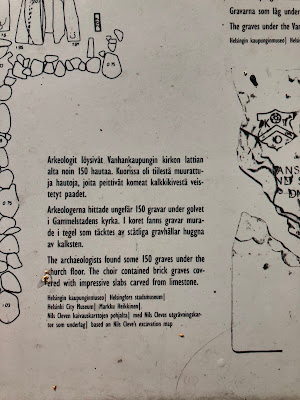 Gravarna som låg under
The graves under the Van
Helsingin kaupunginmuseo| Helsi
Arkeologit löysivät Vanhankaupungin kirkon lattian
alta noin 150 hautaa. Kuorissa oli tiilestä muurattu-
ja hautoja, joita peittivät komeat kalkkikivestä veis-
tetyt paadet.
Arkeologerna hittade ungefär 150 gravar under golvet
i Gammelstadens kyrka. I koret fanns gravar mura-
de i tegel som täcktes av ståtliga gravhällar huggna
av kalksten.
The archaeologists found some 150 graves under the
church floor. The choir contained brick graves cov-
ered with impressive slabs carved from limestone.
Helsingin kaupunginmuseo| Helsingfors stadsmuseum|
Helsinki City Museum| Markku Heikkinen|
Nils Cleven kaivauskarttojen pohjalta| med Nils Cleves utgrävningskar-
tor som underlag| based on Nils Cleve's excavation map